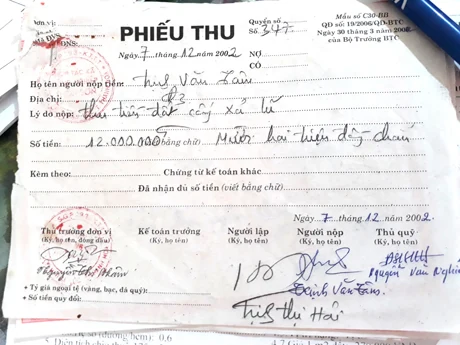 Đơn vị:
PHIẾU THU
Quyển số
Số: 347
Mẫu số C30-BB
QĐ số: 19/2006/QĐ-BTC
Ngày 30 tháng 3 năm 2006
của Bộ Trưởng BTC
Ngày 7 tháng 12 năm 2002
NỢ
CÓ
Họ tên người nộp tiền: Trịnh Văn Tâm
Địa chỉ:
Lý do nộp: thu tiền đất
Số tiền: 12.000.000đ (bằng chữ) Mười hai triệu đồng chẵn
Kèm theo: Chứng từ kế toán khác
Đã nhận đủ số tiền (viết bằng chữ)
Ngày 7 tháng 12 năm 2002
Thủ trưởng đơn vị Kế toán trưởng Người lập Người nộp Thủ quỹ
(Ký, họ tên, đóng dấu) (Ký, họ tên) (Ký, họ tên) (Ký, họ tên) (Ký, họ tên)
Trịnh Văn Tâm
Nguyễn Văn
Trịnh Thị Hải
+ Tỷ giá ngoại tệ (vàng, bạc, đá quý):
+ Số tiền quy đổi: